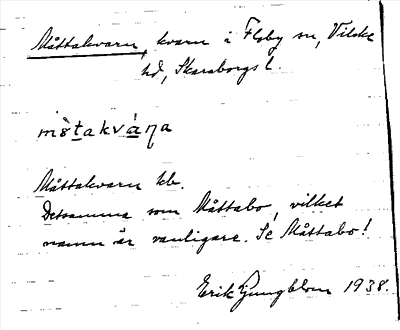 Måttakvarn, kvarn i Floby sn, Vilske
hd, Skaraborgs l.
mòt̲akvá̲ɳa
Måttakvarn kb.
Detsamma som Måttabo, vilket
namn är vanligare. Se Måttabo!
Erik Ljungblom 1938.